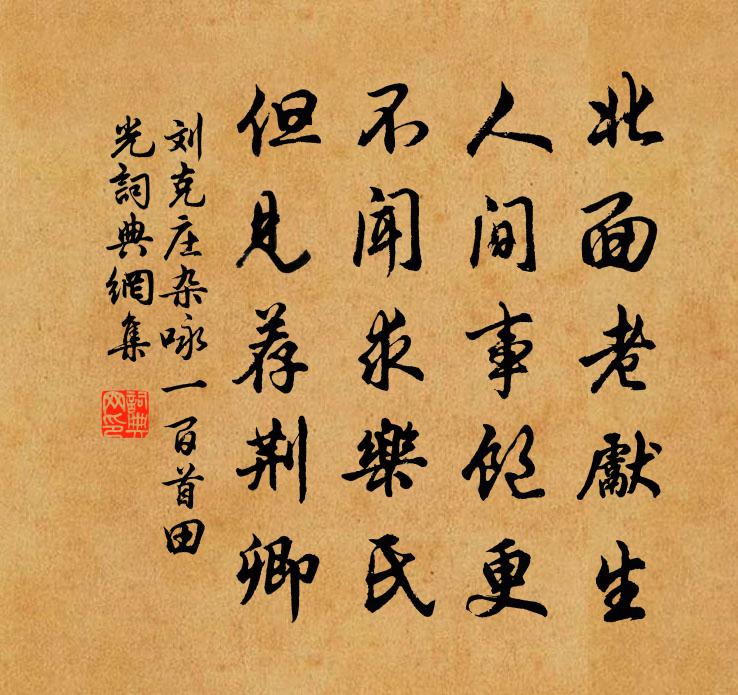 北面老獻生
人間事飽更
不聞求樂氏
但見荐荆卿
刘克庄杂咏一百首田
光詞典網集
詞典
网印